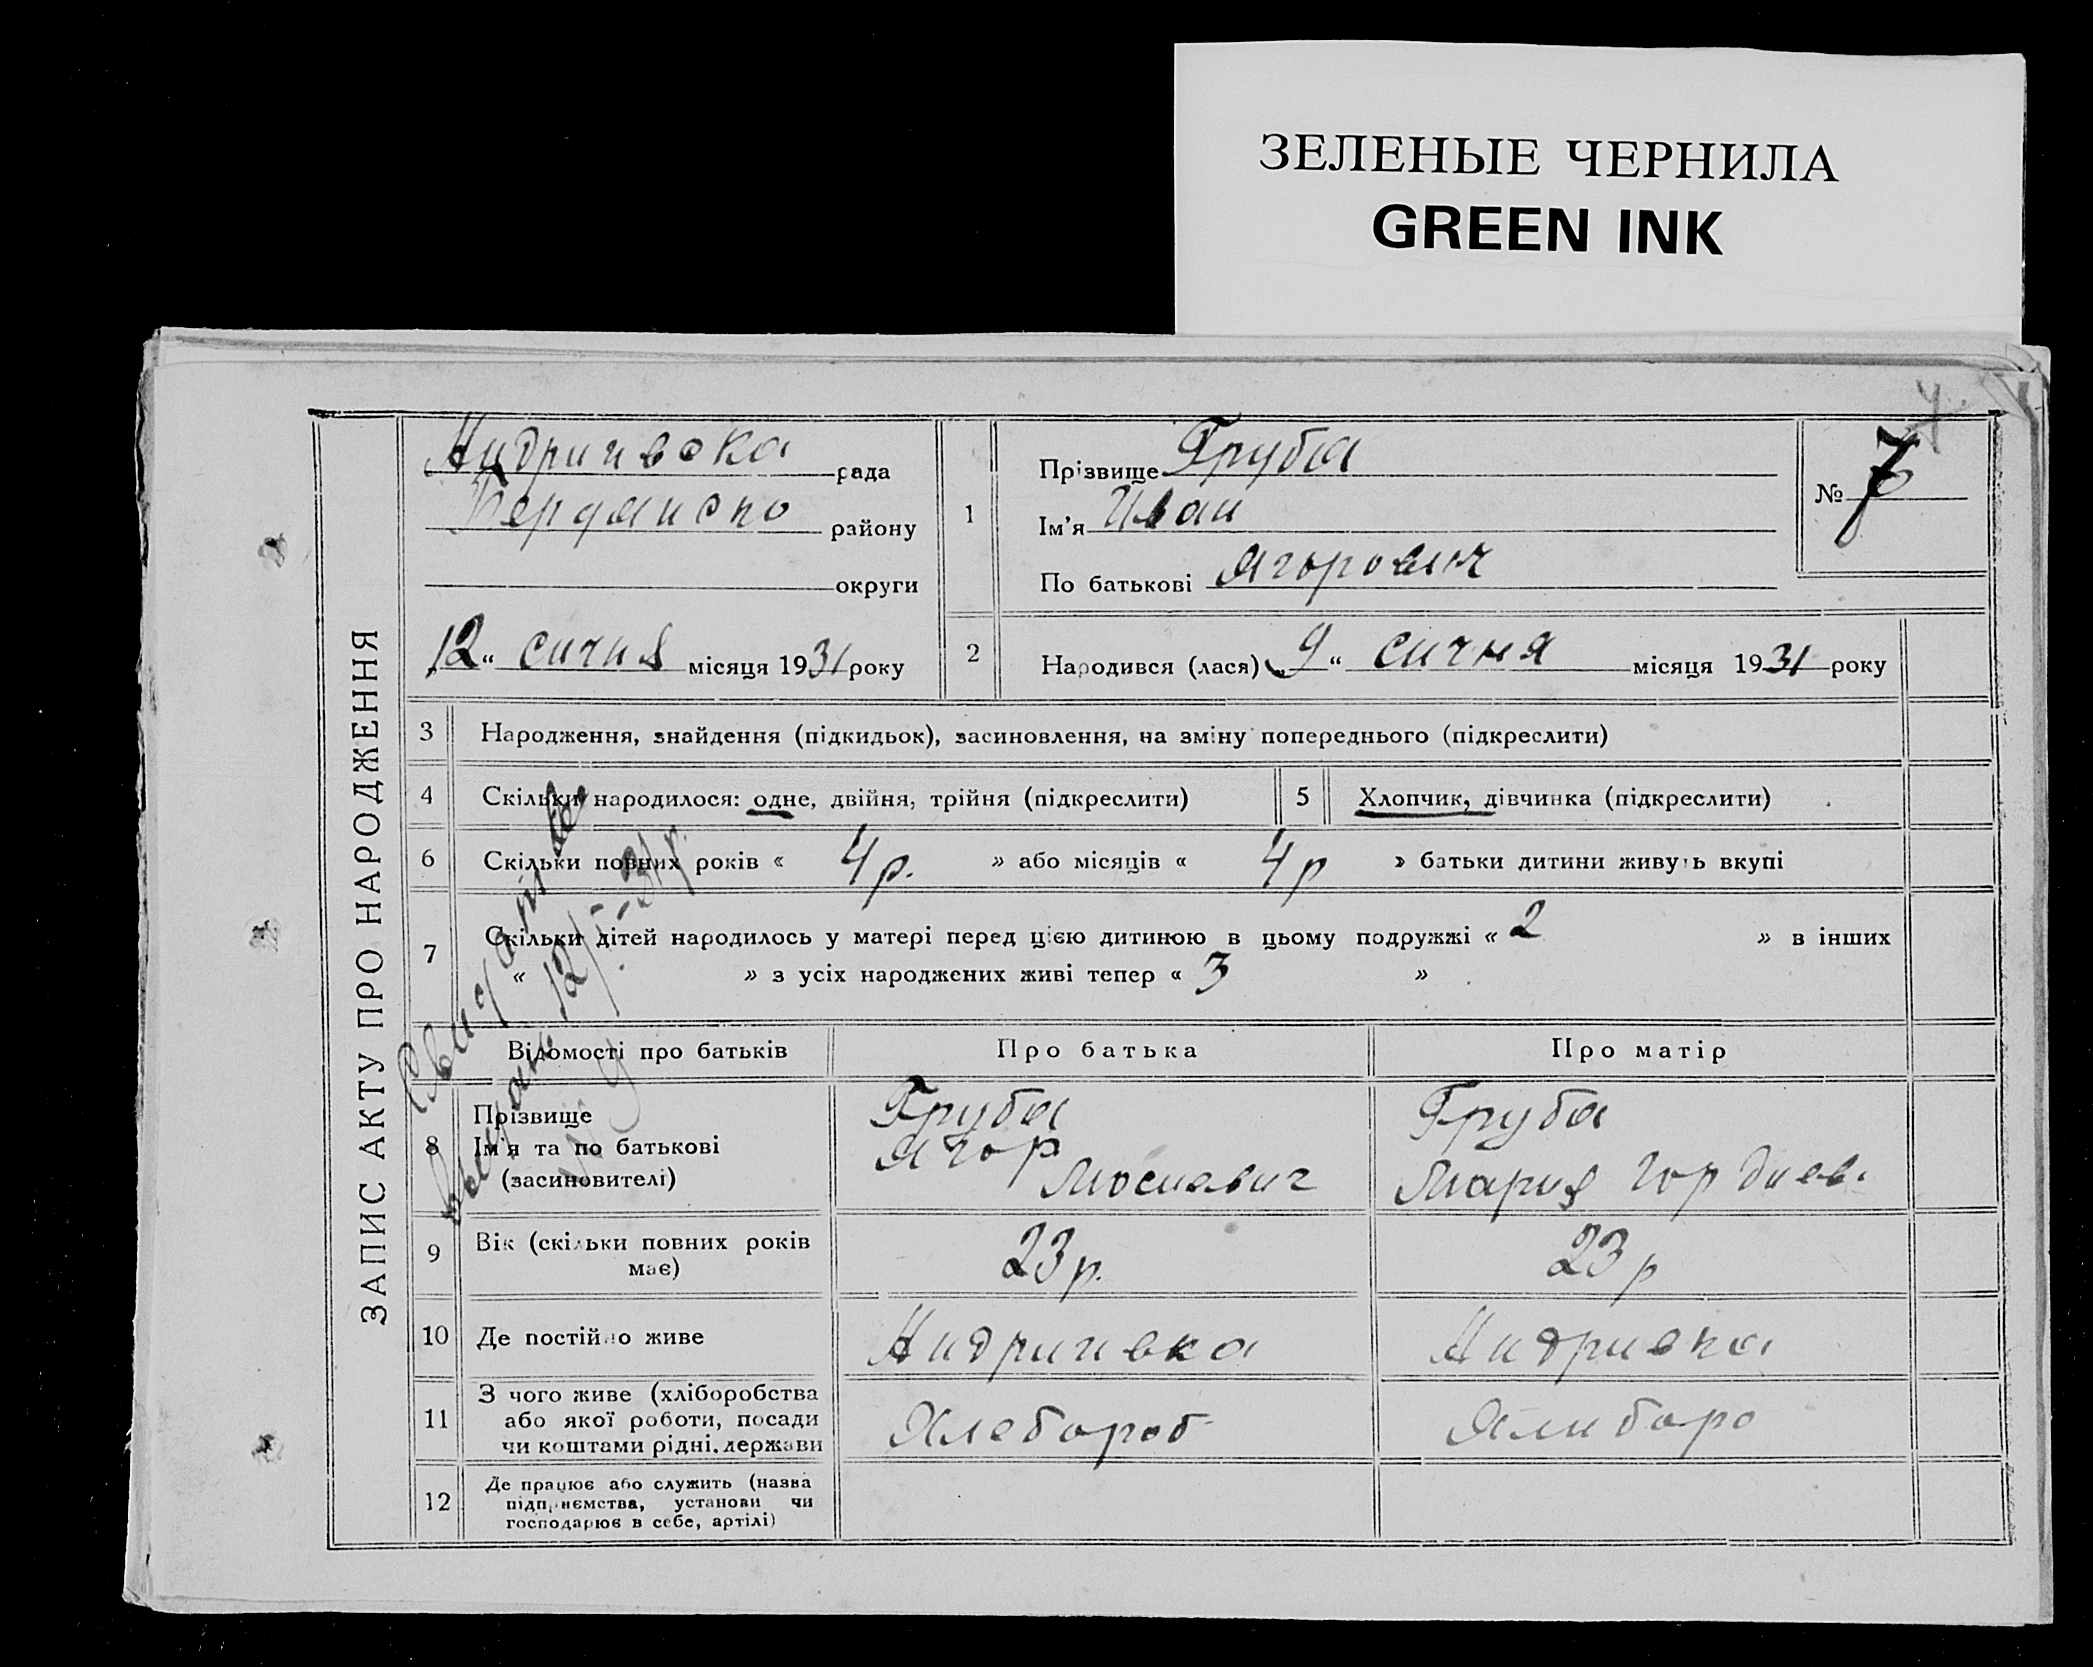 ЗЕЛЕНЫЕ ЧЕРНИЛА
GREEN INK
ЗАПИС АКТУ ПРО НАРОДЖЕННЯ
Андриивска рада
Бердянско району
округи
12 " сичня місяця 1931 року
1
Прізвище Груба
Ім'я Иван
По батькові Ягорович
№ 7
2 Народився (лася) 9 " сичня місяця 1931 року
3 Народження, знайдення (підкидьок), засиновлення, на зміну попереднього (підкреслити)
4 Скільки народилося: одне, двійня, трійня (підкреслити)
5 Хлопчик, дівчинка (підкреслити)
6 Скільки повних років « 4 р. » або місяців « 4 р » батьки дитини живуть вкупі
7 Скільки дітей народилось у матері перед цією дитиною в цьому подружжі « 2 » в інших
« » з усіх народжених живі тепер « 3 »
12/I-31 р.
Відомості про батьків Про батька Про матір
8 Прізвище
Ім'я та по батькові
(засиновителі)
Груба
Ягор
Мосиевич
Груба
Мария Гордиев.
9 Вік (скільки повних років
має)
23 р.
23 р
10 Де постійно живе Андриивка Андривка
11 З чого живе (хліборобства
або якої роботи, посади
чи коштами рідні, держави
Хлебороб
12 Де працює або служить (назва
підприємства, установи чи
господарює в себе, артілі)